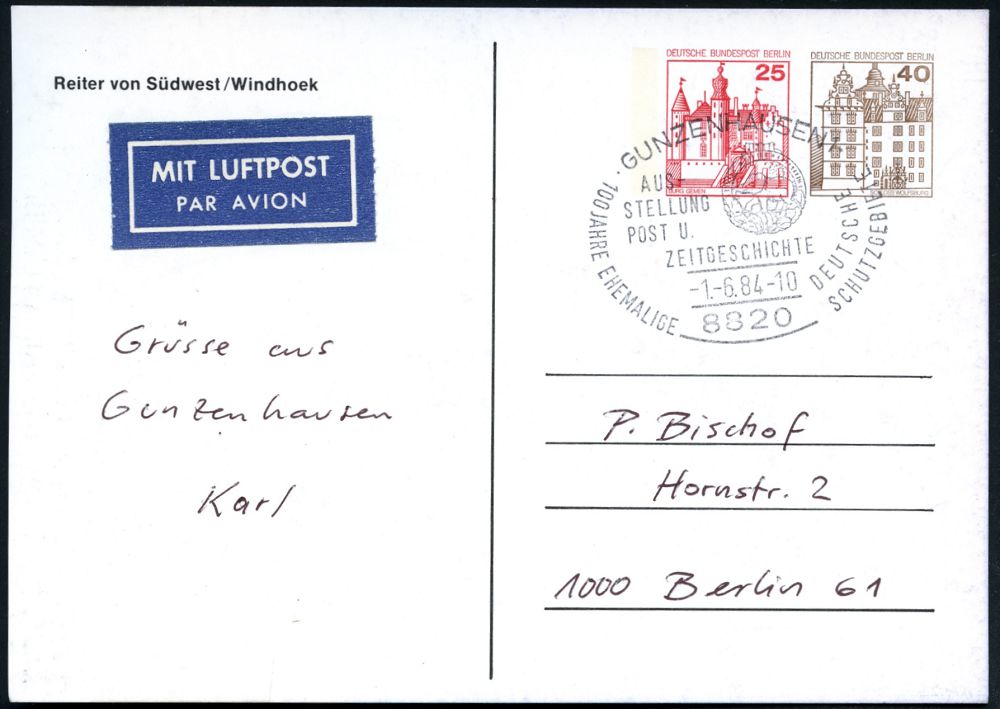 Reiter von Südwest/Windhoek
MIT LUFTPOST
PAR AVION
Grüsse aus
Gunzenhausen
Karl
DEUTSCHE BUNDESPOST BERLIN
25
BURG GEMEN
DEUTSCHE BUNDESPOST BERLIN
40
WOLFSBURG
GUNZENHAUSEN 1
AUS-
STELLUNG
POST U.
ZEITGESCHICHTE
-1.-6.84-10
8820
100 JAHRE EHEMALIGE
DEUTSCHE
SCHUTZGEBIETE
P. Bischof
Hornstr. 2
1000 Berlin 61